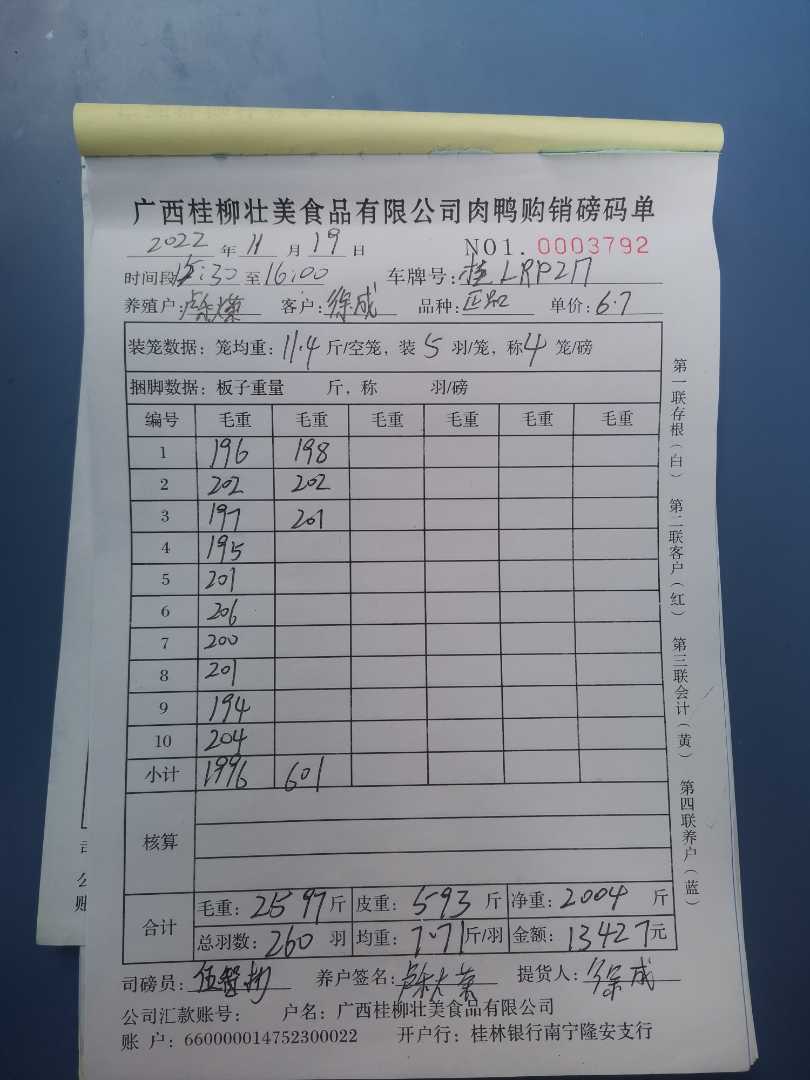 广西桂柳壮美食品有限公司肉鸭购销磅码单
2022 年 11 月 19 日 NO1. 0003792
时间段 15:30 至 16:00 车牌号: 桂LRP217
养殖户: 客户: 徐成 品种: 单价: 6.7
装笼数据: 笼均重: 11.4 斤/空笼, 装 5 羽/笼, 称 4 笼/磅
捆脚数据: 板子重量 斤, 称 羽/磅
编号 毛重 毛重 毛重 毛重 毛重 毛重
1 196 198
2 202 202
3 197 201
4 195
5 201
6 206
7 200
8 201
9 194
10 204
小计 1996 601
核算
合计
毛重: 2597 斤 皮重: 593 斤 净重: 2004 斤
总羽数: 260 羽 均重: 7.71 斤/羽 金额: 13427 元
司磅员: 养户签名: 提货人: 徐成
公司汇款账号: 户名: 广西桂柳壮美食品有限公司
账 户: 660000014752300022 开户行: 桂林银行南宁隆安支行
第一联存根(白) 第二联客户(红) 第三联会计(黄) 第四联养户(蓝)